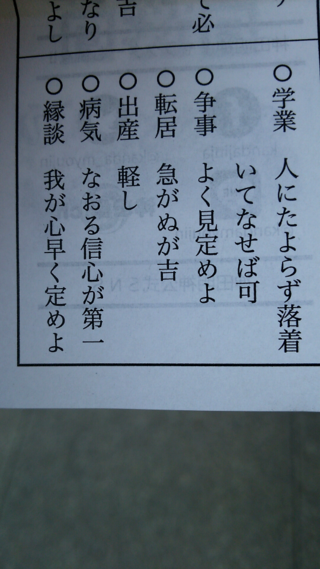 て必
吉
なり
よし
○学業 人にたよらず落着
いてなせば可
○争事 よく見定めよ
○転居 急がぬが吉
○出産 軽し
○病気 なおる信心が第一
○縁談 我が心早く定めよ